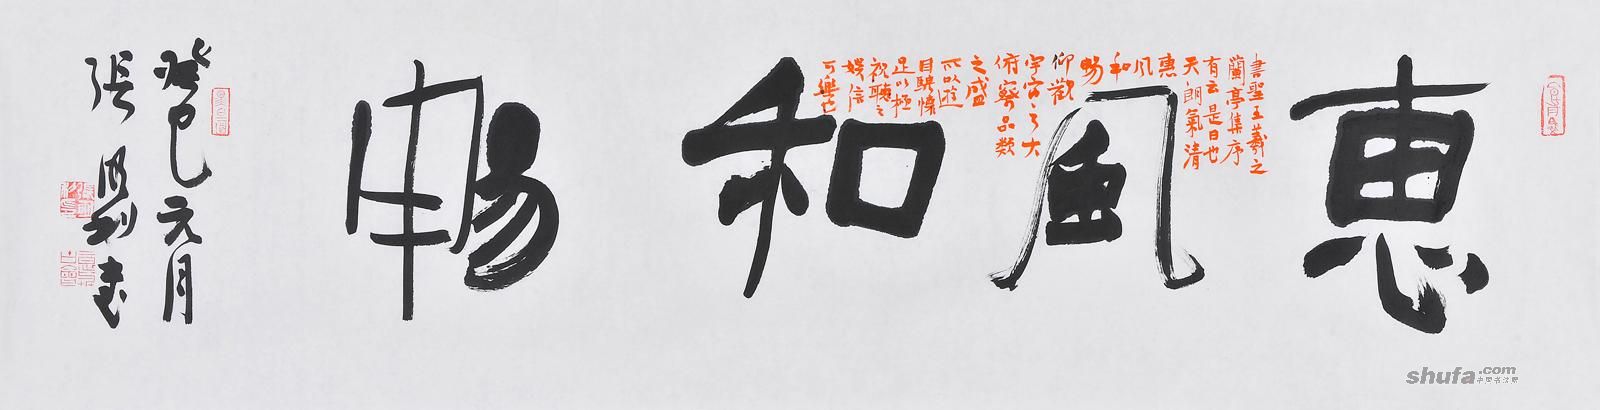 惠風和暢
書聖王羲之
蘭亭集序
有云是日也
天朗氣清
惠
风
和
暢
仰觀
宇宙之大
俯察品類
之盛
所以遊
目騁懷
足以極
視聽之
娛信
可樂也
癸巳元月
張書
shufa.com
中国书法网